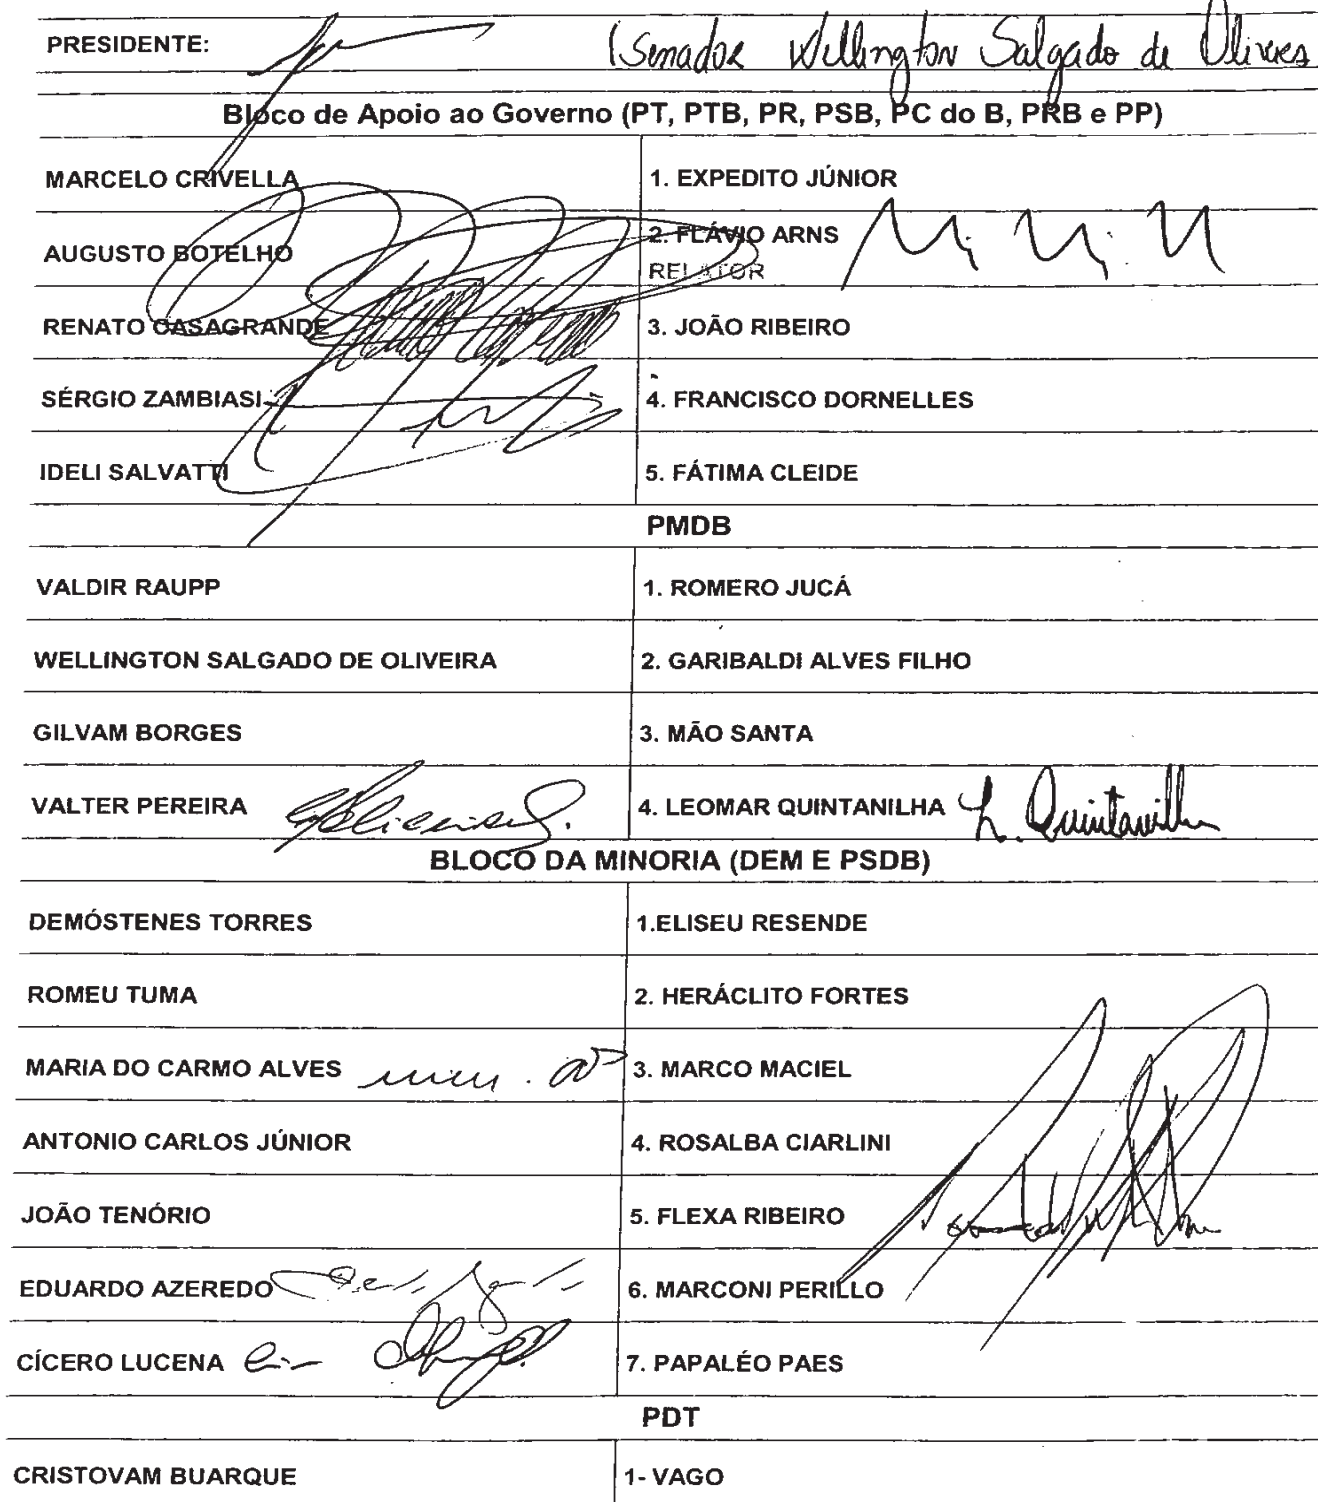 PRESIDENTE: (Senador Wellington Salgado de Oliveira
Bloco de Apoio ao Governo (PT, PTB, PR, PSB, PC do B, PRB e PP)
MARCELO CRIVELLA 1. EXPEDITO JÚNIOR
AUGUSTO BOTELHO 2. FLÁVIO ARNS
RELATOR
RENATO CASAGRANDE 3. JOÃO RIBEIRO
SÉRGIO ZAMBIASI 4. FRANCISCO DORNELLES
IDELI SALVATTI 5. FÁTIMA CLEIDE
PMDB
VALDIR RAUPP 1. ROMERO JUCÁ
WELLINGTON SALGADO DE OLIVEIRA 2. GARIBALDI ALVES FILHO
GILVAM BORGES 3. MÃO SANTA
VALTER PEREIRA 4. LEOMAR QUINTANILHA L. Quintanilha
BLOCO DA MINORIA (DEM E PSDB)
DEMÓSTENES TORRES 1.ELISEU RESENDE
ROMEU TUMA 2. HERÁCLITO FORTES
MARIA DO CARMO ALVES 3. MARCO MACIEL
ANTONIO CARLOS JÚNIOR 4. ROSALBA CIARLINI
JOÃO TENÓRIO 5. FLEXA RIBEIRO
EDUARDO AZEREDO 6. MARCONI PERILLO
CÍCERO LUCENA 7. PAPALÉO PAES
PDT
CRISTOVAM BUARQUE 1- VAGO